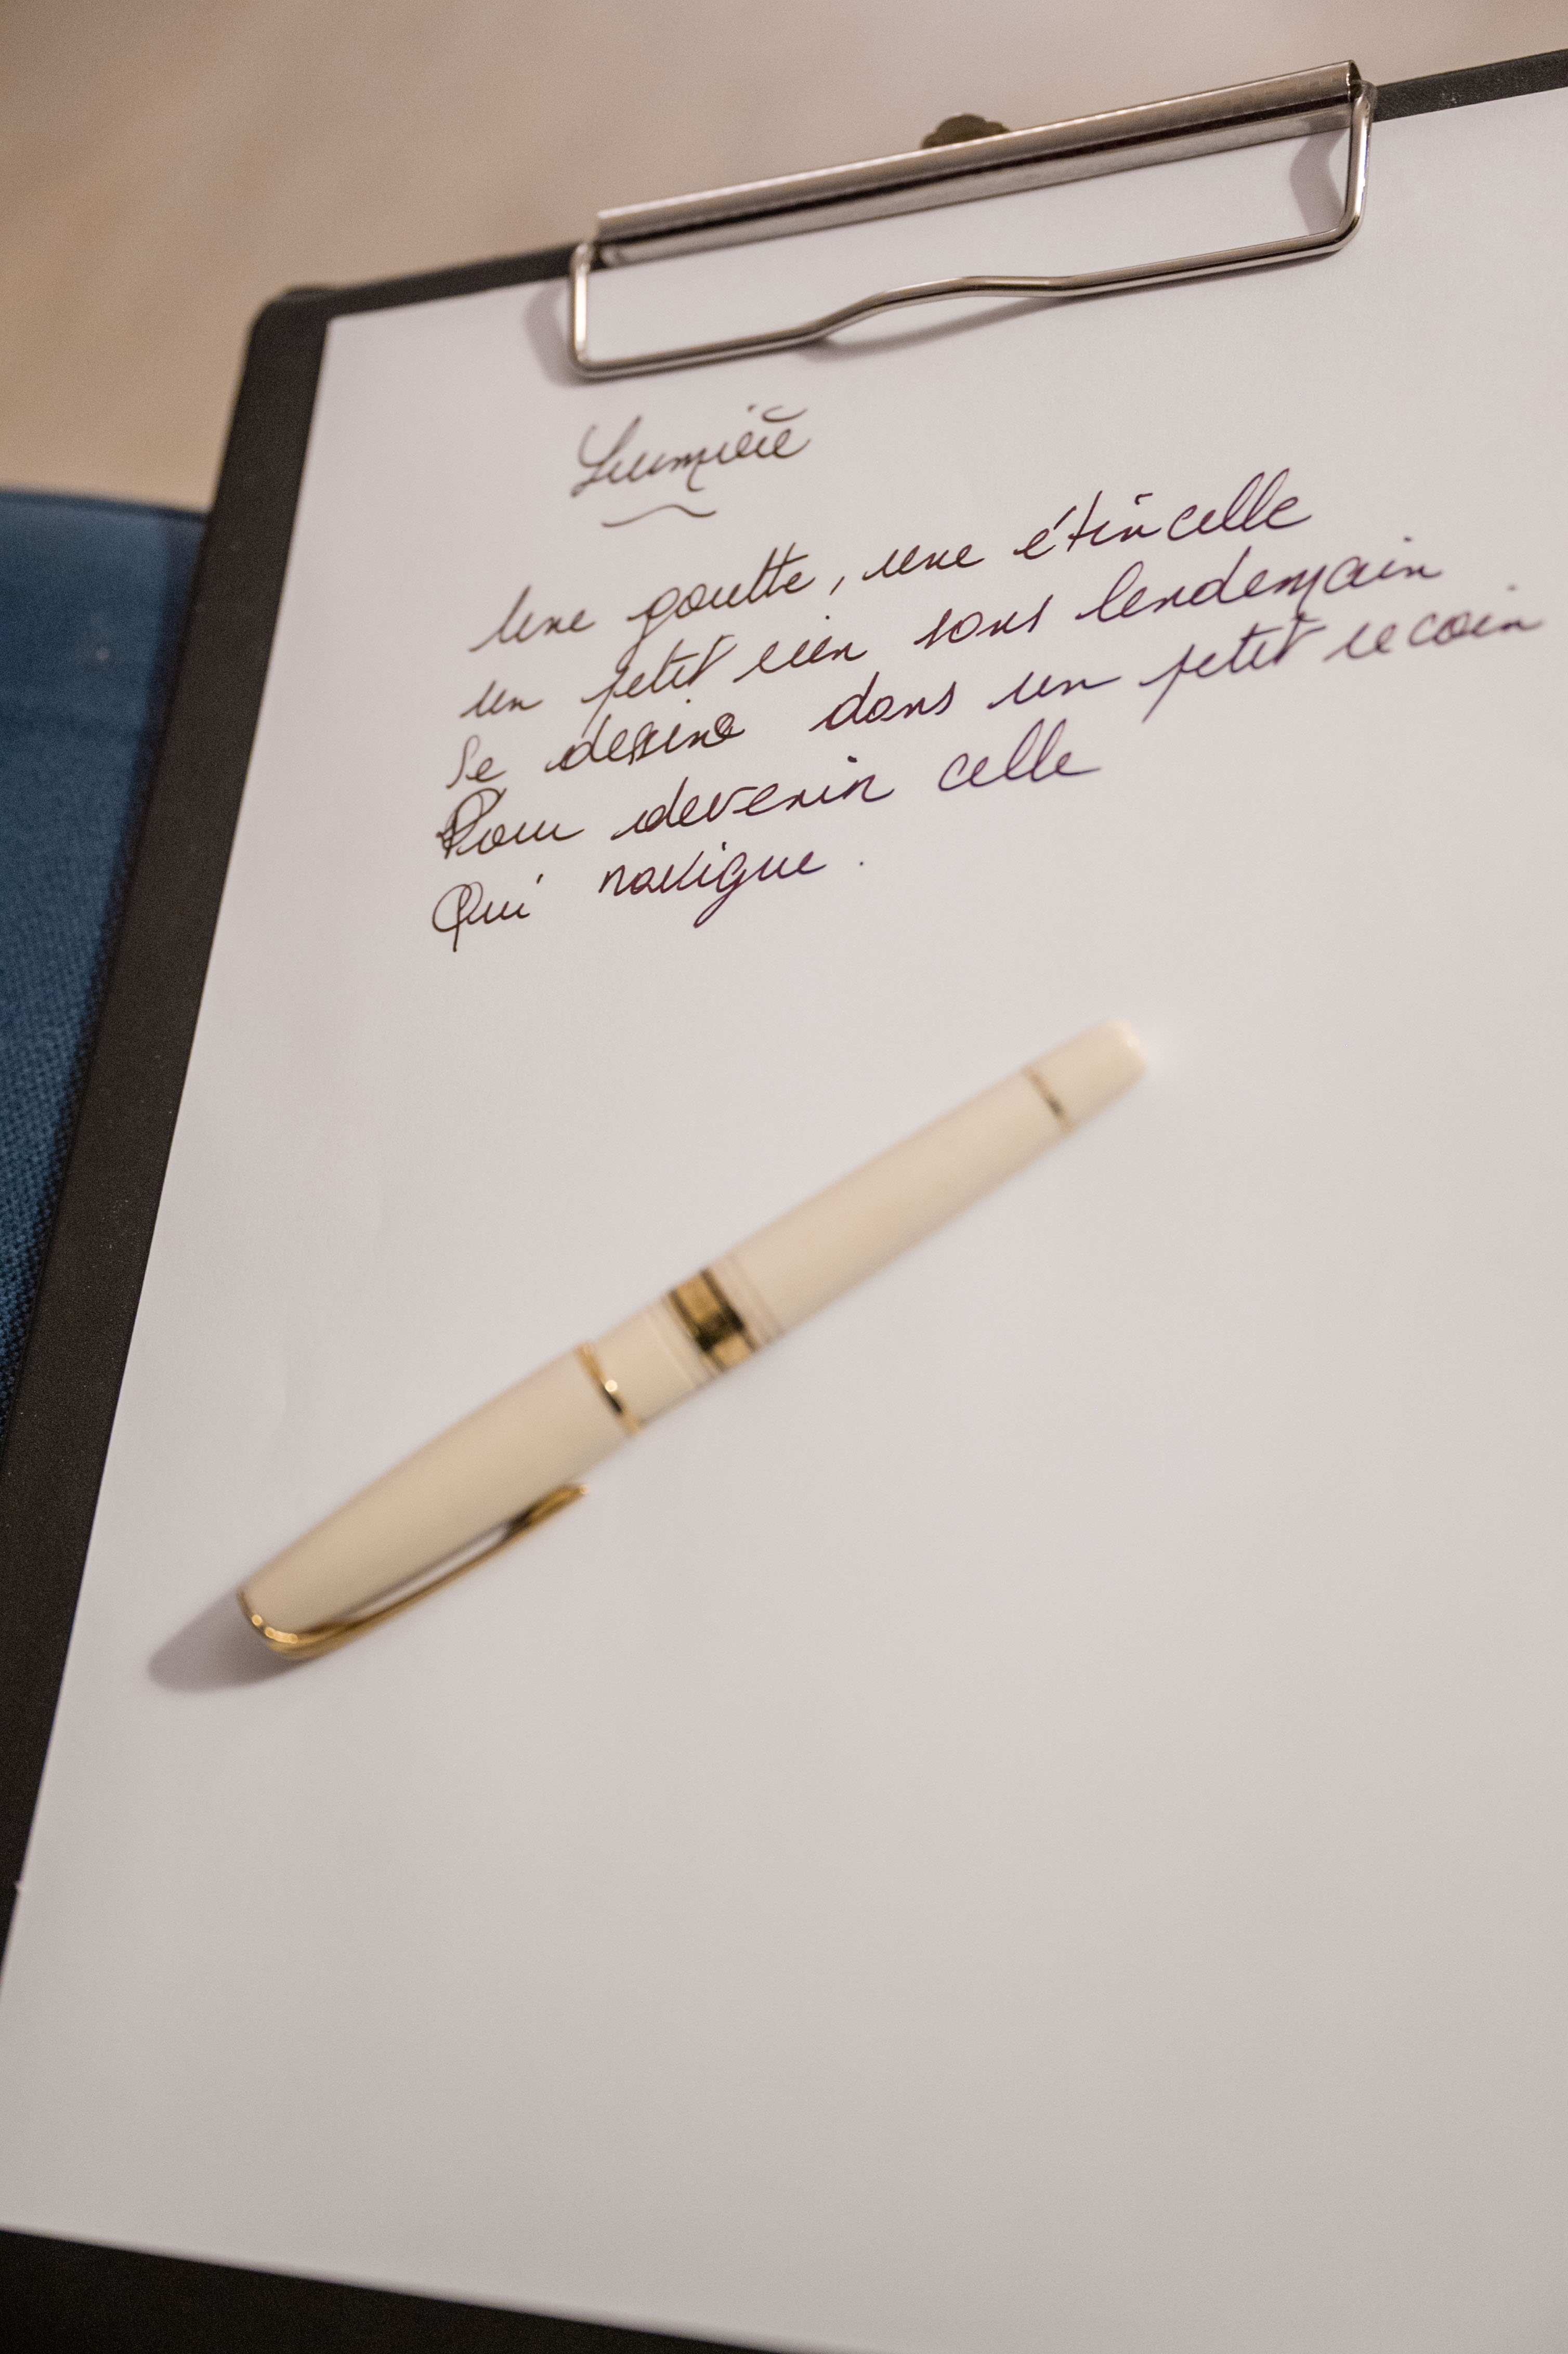 Lumière
Une goutte, une étincelle
un petit rien sans lendemain
Se dessine dans un petit recoin
Pour devenir celle
Qui navigue.